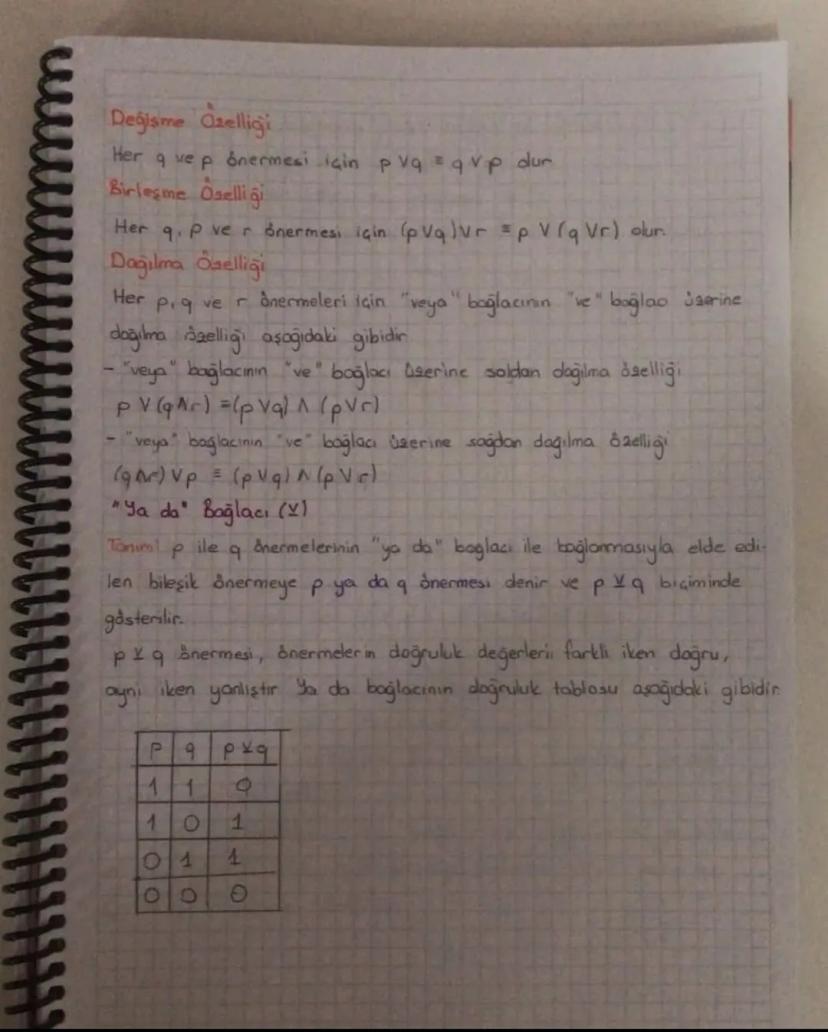 Değişme Özelliği
Her q ve p önermesi için p ∨ q ≡ q ∨ p olur
Birleşme Özelliği
Her q, p ve r önermesi için (p ∨ q) ∨ r ≡ p ∨ (q ∨ r) olur.
Dağılma Özelliği
Her p, q ve r önermeleri için "veya" bağlacının "ve" bağlacı üzerine
dağılma özelliği aşağıdaki gibidir
- "veya" bağlacının "ve" bağlacı üzerine soldan dağılma özelliği
p ∨ (q ∧ r) ≡ (p ∨ q) ∧ (p ∨ r)
- "veya" bağlacının "ve" bağlacı üzerine sağdan dağılma özelliği
(q ∧ r) ∨ p ≡ (p ∨ q) ∧ (p ∨ r)
"Ya da" Bağlacı (⊻)
Tanım! p ile q önermelerinin "ya da" bağlacı ile bağlanmasıyla elde edi-
len bileşik önermeye p ya da q önermesi denir ve p ⊻ q biçiminde
gösterilir.
p ⊻ q önermesi, önermelerin doğruluk değerleri farklı iken doğru,
ayni iken yanlıştır Ya da bağlacının doğruluk tablosu aşağıdaki gibidir
p q p ⊻ q
1 1 0
1 0 1
0 1 1
0 0 0